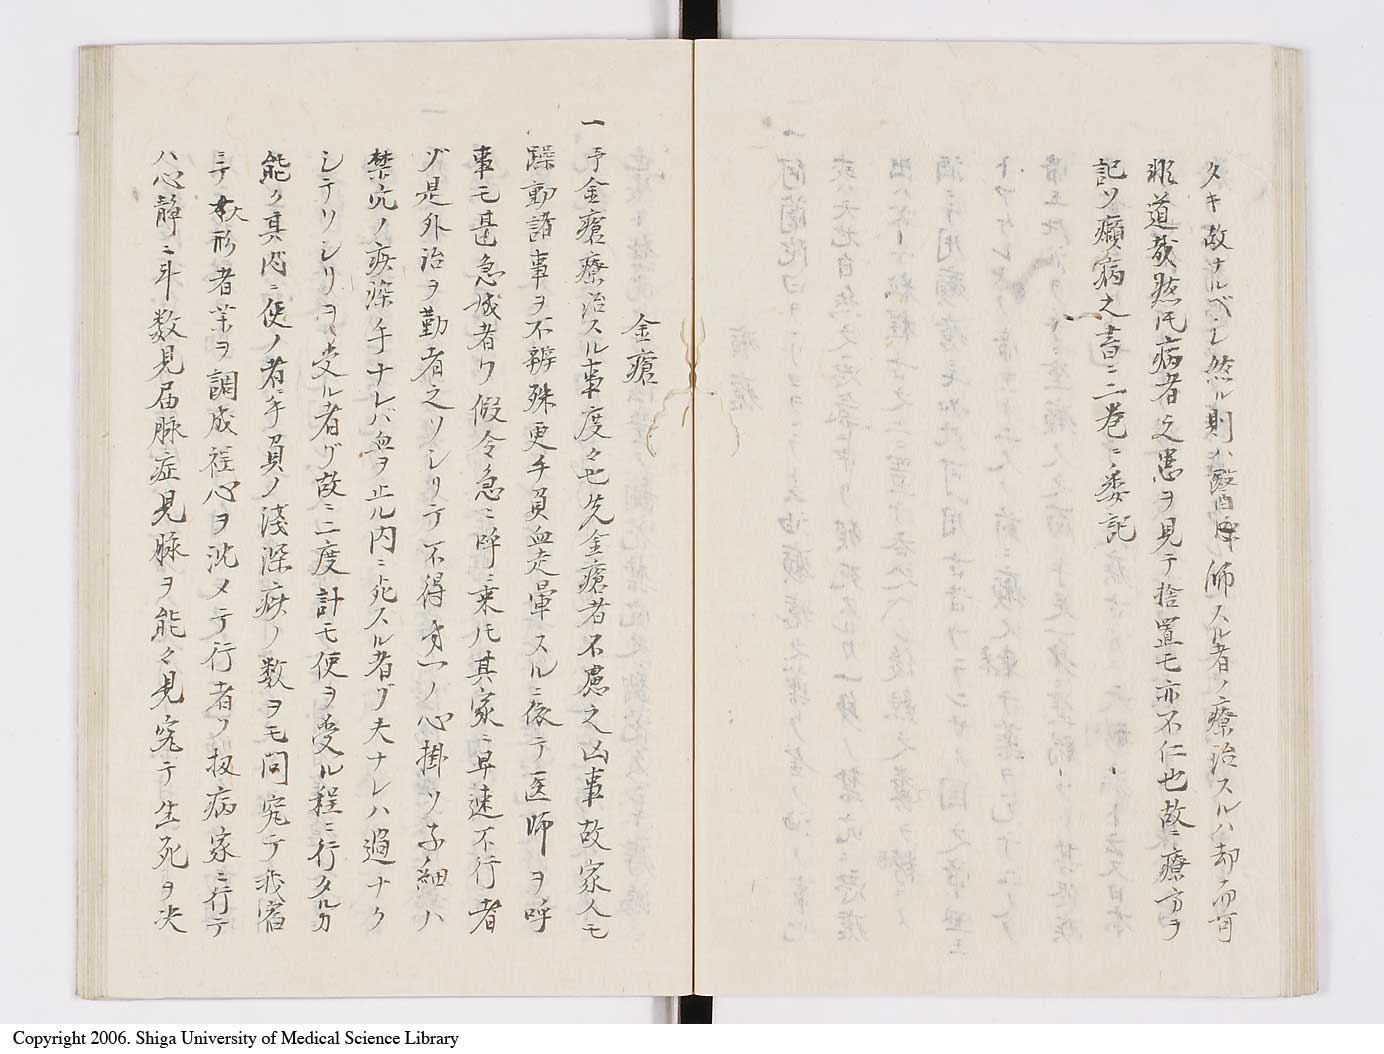 タキ故ナルベシ然ル則ハ醫師スル者ノ療治スルハ却而可
非道哉然氏病者之患ヲ見テ捨置モ亦不仁也故ニ療方ヲ
記ソ癩病之書ニ二巻ニ委記
金瘡
一 予金瘡療治スル事度々也先金瘡者不慮之凶事故家人モ
躁動諸事ヲ不辨殊更手負血走暈スルニ依テ医師ヲ呼
事モ甚急成者ワ假令急ニ呼ニ来氏其家ニ早速不行者
ゾ是外治ヲ勤者之ソシリテ不得才一ノ心掛ソ子細ハ
禁穴ノ疾深手ナレバ血ヲ止ル内ニ死スル者ゾ夫ナレハ過ナク
シテソシリヲ受ル者ゾ故ニ二度計モ使ヲ受ル程ニ行タルカ
能ク其内ニ使ノ者ニ手負ノ淺深疾ノ数ヲモ問究テ我宿
ニテ形者業ヲ調成程心ヲ沈メテ行者ソ扨病家ニ行テ
ハ心静ニ斗数見届脉症見脉ヲ能々見究テ生死ヲ决
Copyright 2006. Shiga University of Medical Science Library